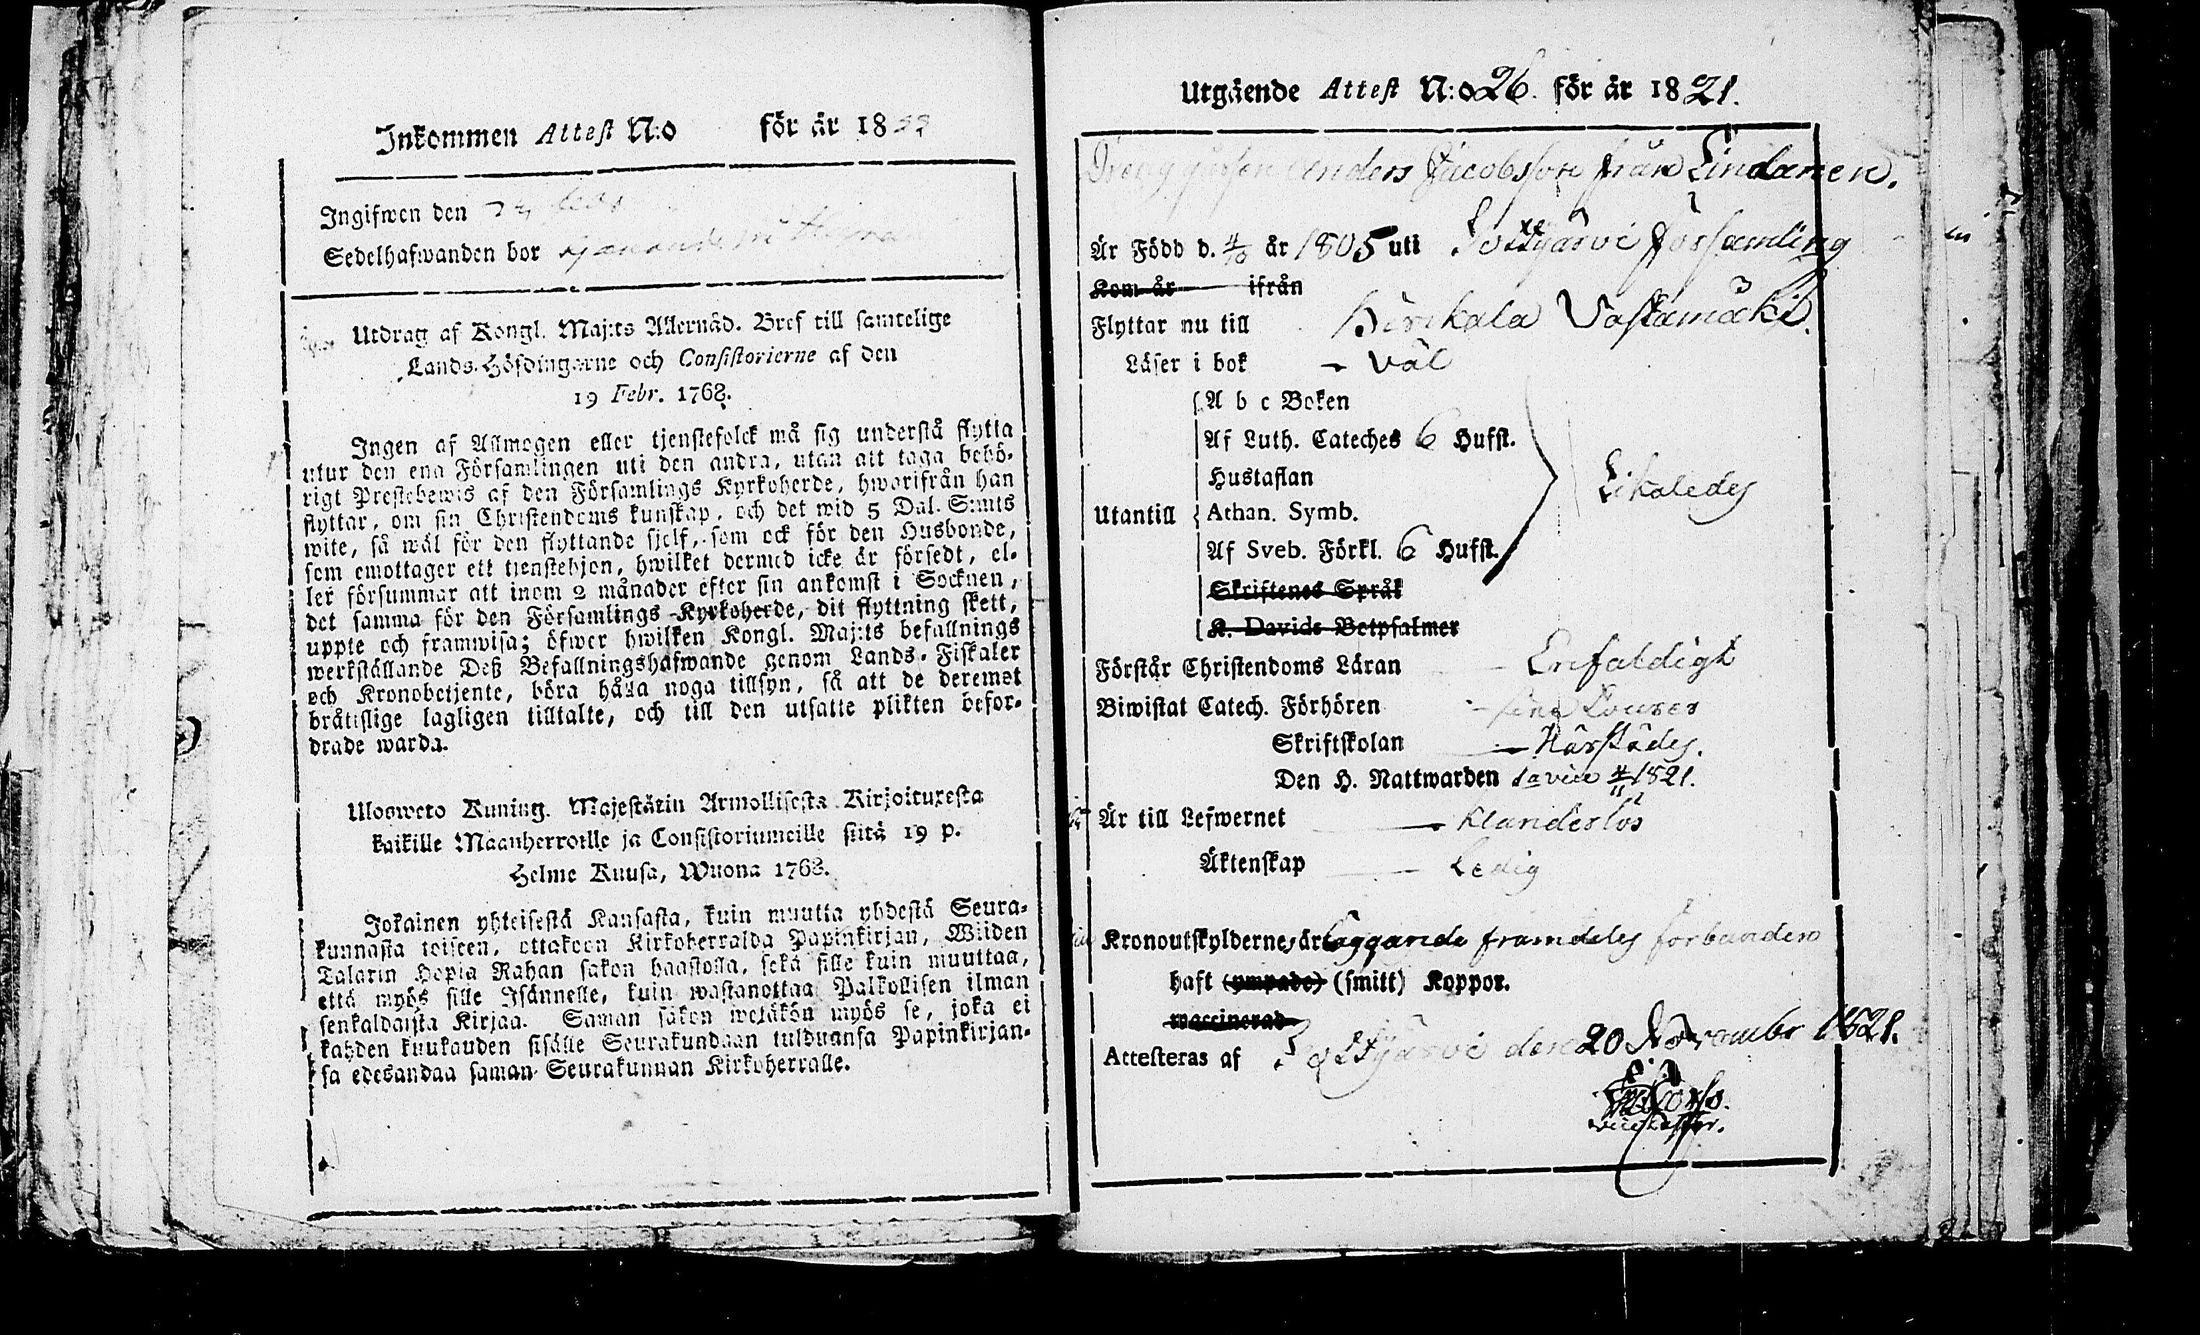 Inkommen Attest N:o för år 18
Ingifwen den
Sedelhafwanden bor
Utdrag af Kongl. Maj:ts Allernåd. Bref till samtelige
Lands-Höfdingarne och Consistorierne af den
19 Febr. 1768.
Ingen af Allmogen eller tjenstefolck må sig understå flytta
utur den ena Församlingen uti den andra, utan att taga behö-
rigt Prestebewis af den Församlings Kyrkoherde, hwarifrån han
flyttar, om sin Christendoms kunskap, och det wid 5 Dal. S:mts
wite, så wäl för den flyttande sjelf, som ock för den Husbonde,
som emottager ett tjenstehjon, hwilket dermed icke är försedt, el-
ler försummar att inom 2 månader efter sin ankomst i Socknen,
det samma för den Församlings Kyrkoherde, dit flyttning skett,
uppte och framwisa; öfwer hwilken Kongl. Maj:ts befallnings
werkställande Deß Befallningshafwande genom Lands-Fiskaler
och Kronobetjente, böra hålla noga tillsyn, så att de deremot
bråttslige lagligen tilltalte, och till den utsatte plikten befor-
drade warda.
Ulosweto Kuning. Majestätin Armollisesta Kirjoituresta
kaikille Maanherroille ja Consistoriumeille siitä 19 p.
Helme Kuusa, Wuona 1768.
Jokainen yhteisestä Kansasta, kuin muutta yhdestä Seura-
kunnasta toiseen, ottakoon Kirkoherralda Papinkirjan, Wiiden
Talarin Hopia Rahan sakon haastolla, sekä sille kuin muuttaa,
että myös sille Isännelle, kuin wastanottaa Palkollisen ilman
senkaldaista Kirjaa. Saman sakon wetäkön myös se, joka ei
kahden kuukauden sisälle Seurakundaan tulduansa Papinkirjan-
sa edesandaa saman Seurakunnan Kirkoherralle.
Utgående Attest N:o 26. för år 1821.
Dreng gossen Anders Jacobsson från Lindanen.
Är Född d. 4/10 år 1805 uti Töttjärvi församling
Kom år ifrån
Flyttar nu till Birckala Vastamäki.
Läser i bok - väl
A b c Boken
Af Luth. Cateches 6 Hufst.
Hustaflan
Likaledes
Utantill Athan. Symb.
Af Sveb. Förkl. 6 Hufst.
Skriftenes Språk
K. Davids Botpsalmer
Förstår Christendoms Läran - Enfaldigt
Biwistat Catech. Förhören - sine
Skriftskolan - Härstädes.
Den H. Nattwarden 1a vice 4/11 1821.
Är till Lefwernet - klanderlös
Äktenskap - Ledig
Kronoutskylderne, är läggande framdeles förbunden
haft (ympade) (smitt) Koppor.
waccinerad
Attesteras af Töttjärvi den 20 Novembr 1821.